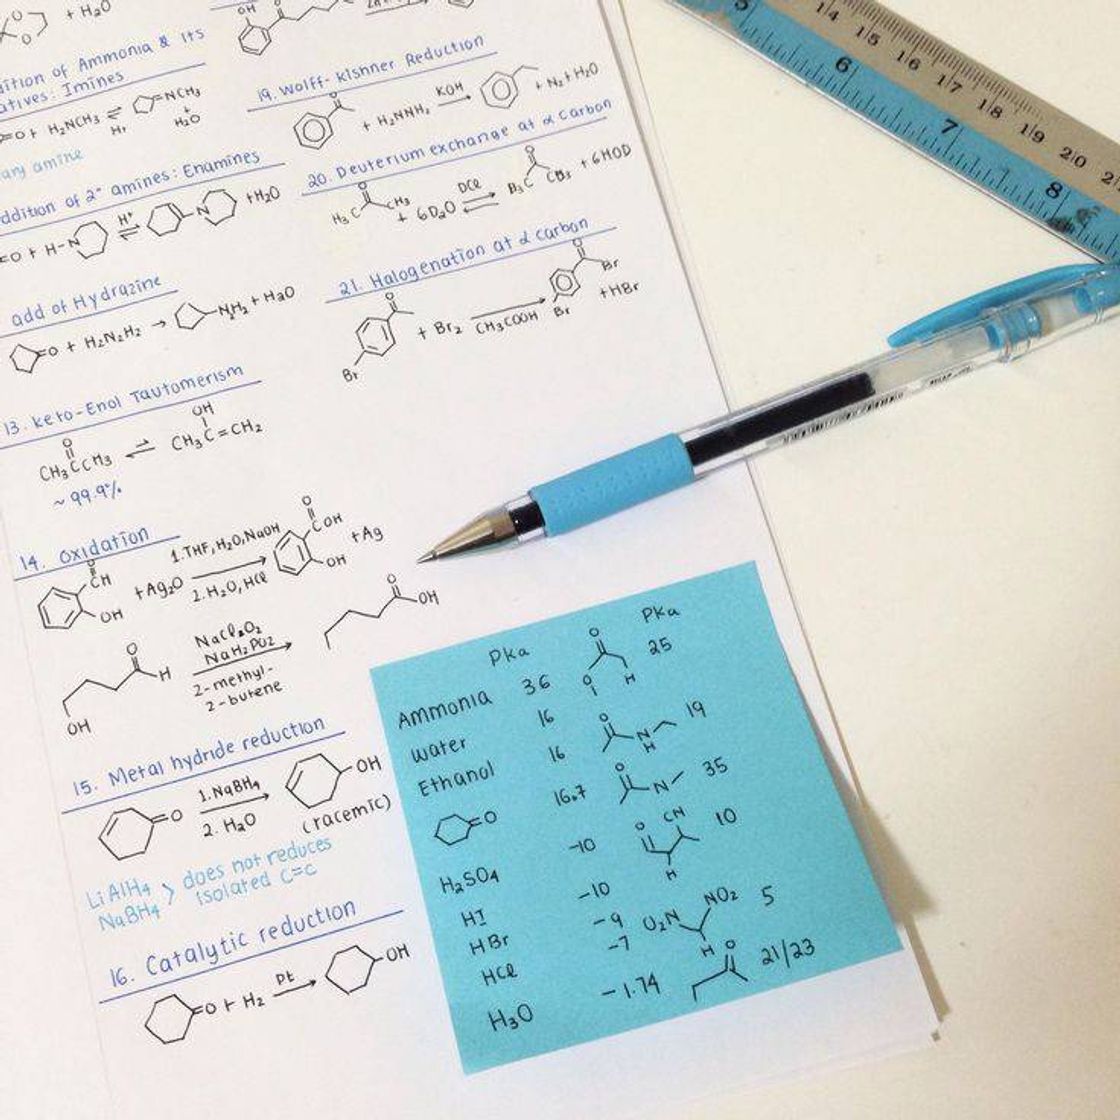 + H₂O
dition of Ammonia & its
atives: Imines
=O + H₂NCH₃ ⇌ =NCH₃
H+ + H₂O
ary amine
ddition of 2° amines: Enamines
=O + H-N H+ ⇌ N +H₂O
add of Hydrazine
=O + H₂N₂H₂ → NH₂ + H₂O
13. keto-Enol Tautomerism
O OH
CH₃CCH₃ ⇌ CH₃C=CH₂
~ 99.9%
14. oxidation
O CH OH +Ag₂O 1.THF, H₂O, NaOH
2. H₂O, HCl
O COH OH +Ag
O H OH
NaH₂PO₂
2-methyl-
2-butene
O OH
15. Metal hydride reduction
=O 1. NaBH₄
2. H₂O
OH
(racemic)
LiAlH₄
NaBH₄ > does not reduces
isolated C=C
16. Catalytic reduction
=O + H₂ Pt → OH
OH O
19. Wolff-Kishner Reduction
O + H₂NNH₂ KOH → + N₂ + H₂O
20. Deuterium exchange at α carbon
O H₃C CH₃ + 6D₂O DCl ⇌ O D₃C CD₃ + 6HOD
21. Halogenation at α carbon
O Br + Br₂ CH₃COOH → O Br Br + HBr
PKa
Ammonia 36
water 16
Ethanol 16
=O 16.7
H₂SO₄ -10
HI -10
HBr -9
HCl -7
H₃O -1.74
PKa
O O H 25
O N H 19
O N 35
O CN H 10
O₂N NO₂ H 5
O 21/23
5 6 7 8
14 15 16 17 18 19 20 2